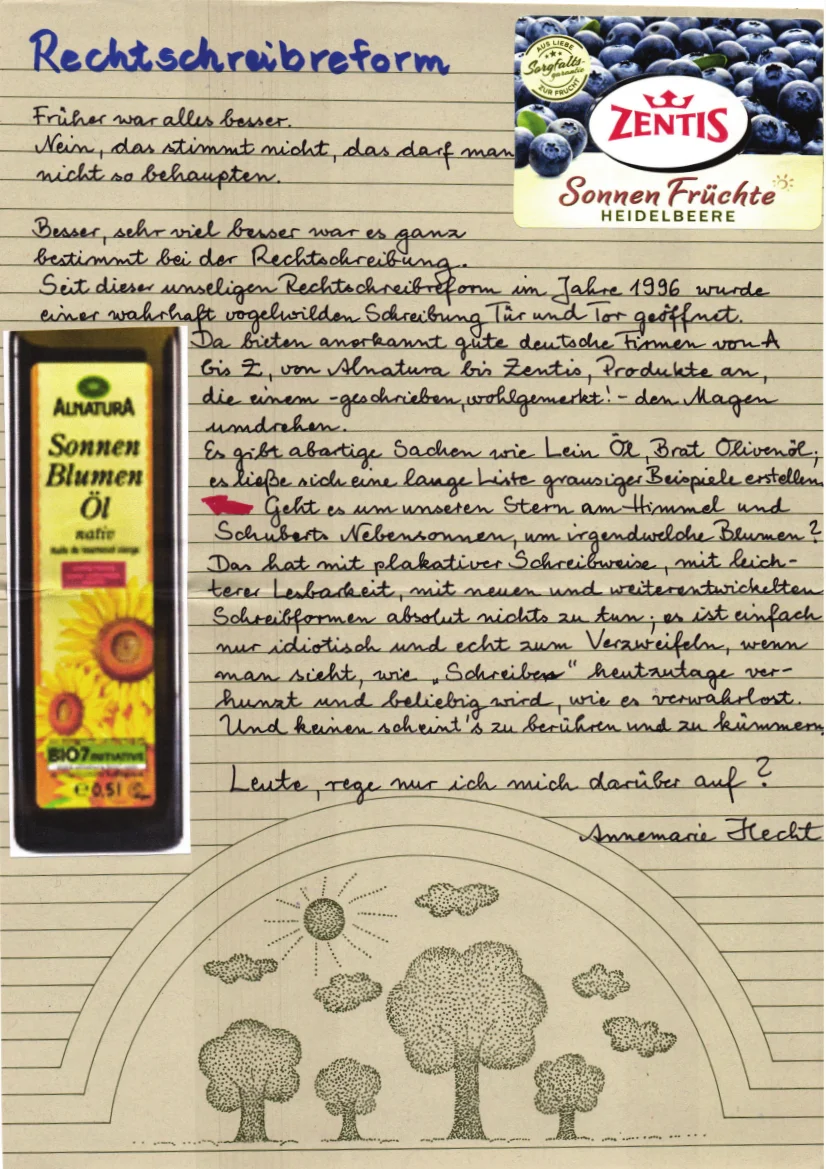 Rechtschreibreform
AUS LIEBE
Sorgfalts-
garantie
ZUR FRUCHT
ZENTIS
Sonnen Früchte
HEIDELBEERE
Früher war alles besser.
Nein, das stimmt nicht, das darf man
nicht so behaupten.
Besser, sehr viel besser war es ganz
bestimmt bei der Rechtschreibung.
Seit dieser unseligen Rechtschreibreform im Jahre 1996 wurde
einer wahrhaft vogelwilden Schreibung Tür und Tor geöffnet.
Da bieten anerkannt gute deutsche Firmen von A
bis Z, von Alnatura bis Zentis, Produkte an,
die einem -geschrieben, wohlgemerkt!- den Magen
umdrehen.
Es gibt abartige Sachen wie Lein Öl, Brat Olivenöl;
es ließe sich eine lange Liste grausiger Beispiele erstellen.
Geht es um unseren Stern am Himmel und
Schuberts Nebensonnen, um irgendwelche Blumen?
Das hat mit plakativer Schreibweise, mit leich-
terer Lesbarkeit, mit neuen und weiterentwickelten
Schreibformen absolut nichts zu tun; es ist einfach
nur idiotisch und echt zum Verzweifeln, wenn
man sieht, wie „Schreiben“ heutzutage ver-
hunzt und beliebig wird, wie es verwahrlost.
Und keinen scheint's zu berühren und zu kümmern.
Leute, rege nur ich mich darüber auf?
Annemarie Hecht
ALNATURA
Sonnen
Blumen
Öl
nativ
BIO7 INITIATIVE
e 0,5l